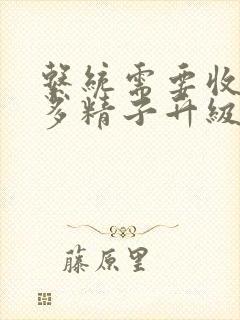 繫統需要收
多精子升級
藤原里